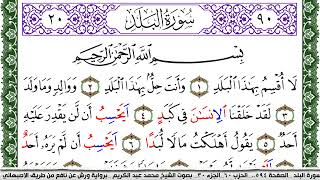 ٩٠ سُورَةُ الْبَلَدِ ٢٠
بِسْمِ اللَّهِ الرَّحْمَٰنِ الرَّحِيمِ
لَا أُقْسِمُ بِهَٰذَا الْبَلَدِ ١ وَأَنتَ حِلٌّ بِهَٰذَا الْبَلَدِ ٢ وَوَالِدٍ وَمَا وَلَدَ
٣ لَقَدْ خَلَقْنَا الِانسَٰنَ فِي كَبَدٍ ٤ أَيَحْسِبُ أَن لَّن يَقْدِرَ عَلَيْهِ
أَحَدٌ ٥ يَقُولُ أَهْلَكْتُ مَالًا لُّبَدًا ٦ أَيَحْسِبُ أَن لَّمْ يَرَهُۥ أَحَدٌ
سورة البلد الصفحة ٥٩٤ الحزب ٦٠ الجزء ٣٠ بصوت الشيخ محمد عبد الكريم برواية ورش عن نافع من طريق الاصبهاني